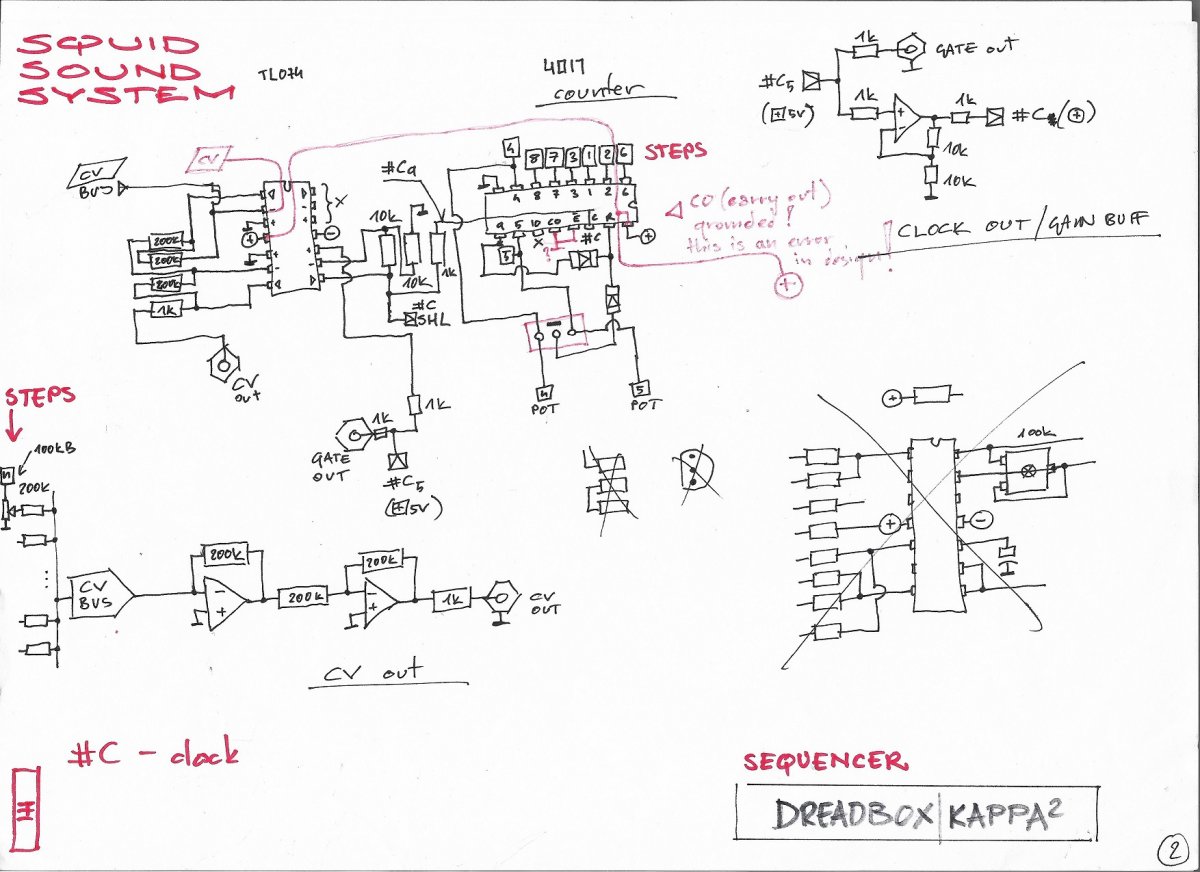 SQUID
SOUND
SYSTEM
TL074
4017
counter
1k
GATE OUT
#C5
(+5V)
1k
+
-
1k
#C
(+)
10k
10k
CLOCK OUT / GAIN BUFF
CV
BUS
CV
#Ca
4
8
7
3
1
2
6
STEPS
4
8
7
3
1
2
6
9
5
10
CO
E
C
R
X
?
#C
+
5
CO (carry out)
grounded!
this is an error
in design!
+
-
+
+
+
-
X
-
200k
200k
200k
1k
10k
10k
1k
#C
SHL
CV
OUT
1k
1k
GATE
OUT
#C5
(+5V)
4
POT
5
POT
STEPS
100kB
200k
...
CV
BUS
200k
-
+
200k
200k
-
+
1k
CV
OUT
CV out
+
100k
+
-
#C - clock
#
SEQUENCER
DREADBOX | KAPPA2
2